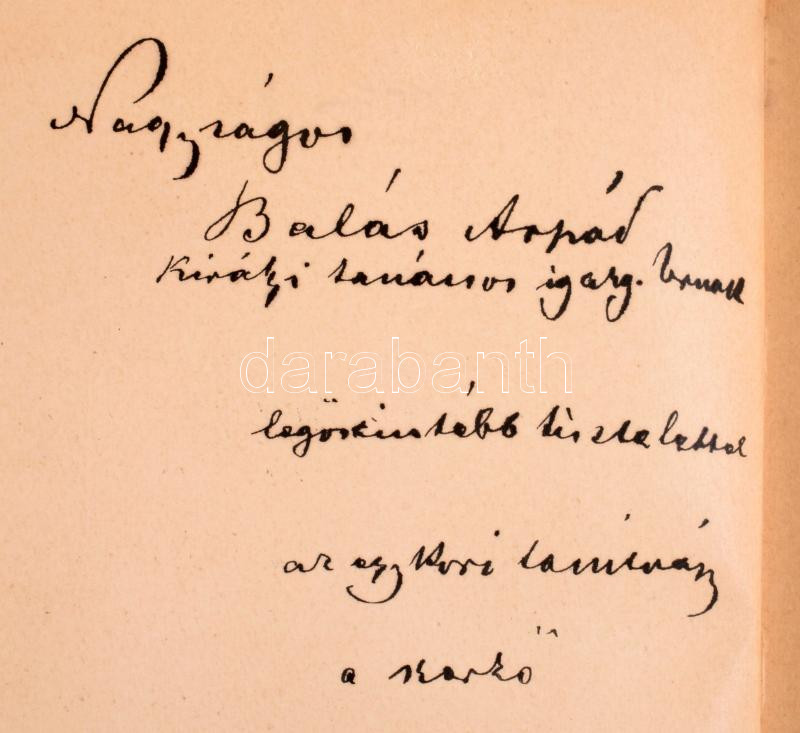 Nagyságos
Balás Árpád
királyi tanácsos igazg. Urnak
darabanth
legőszintébb tisztelettel
az egykori tanítvány
a szerző